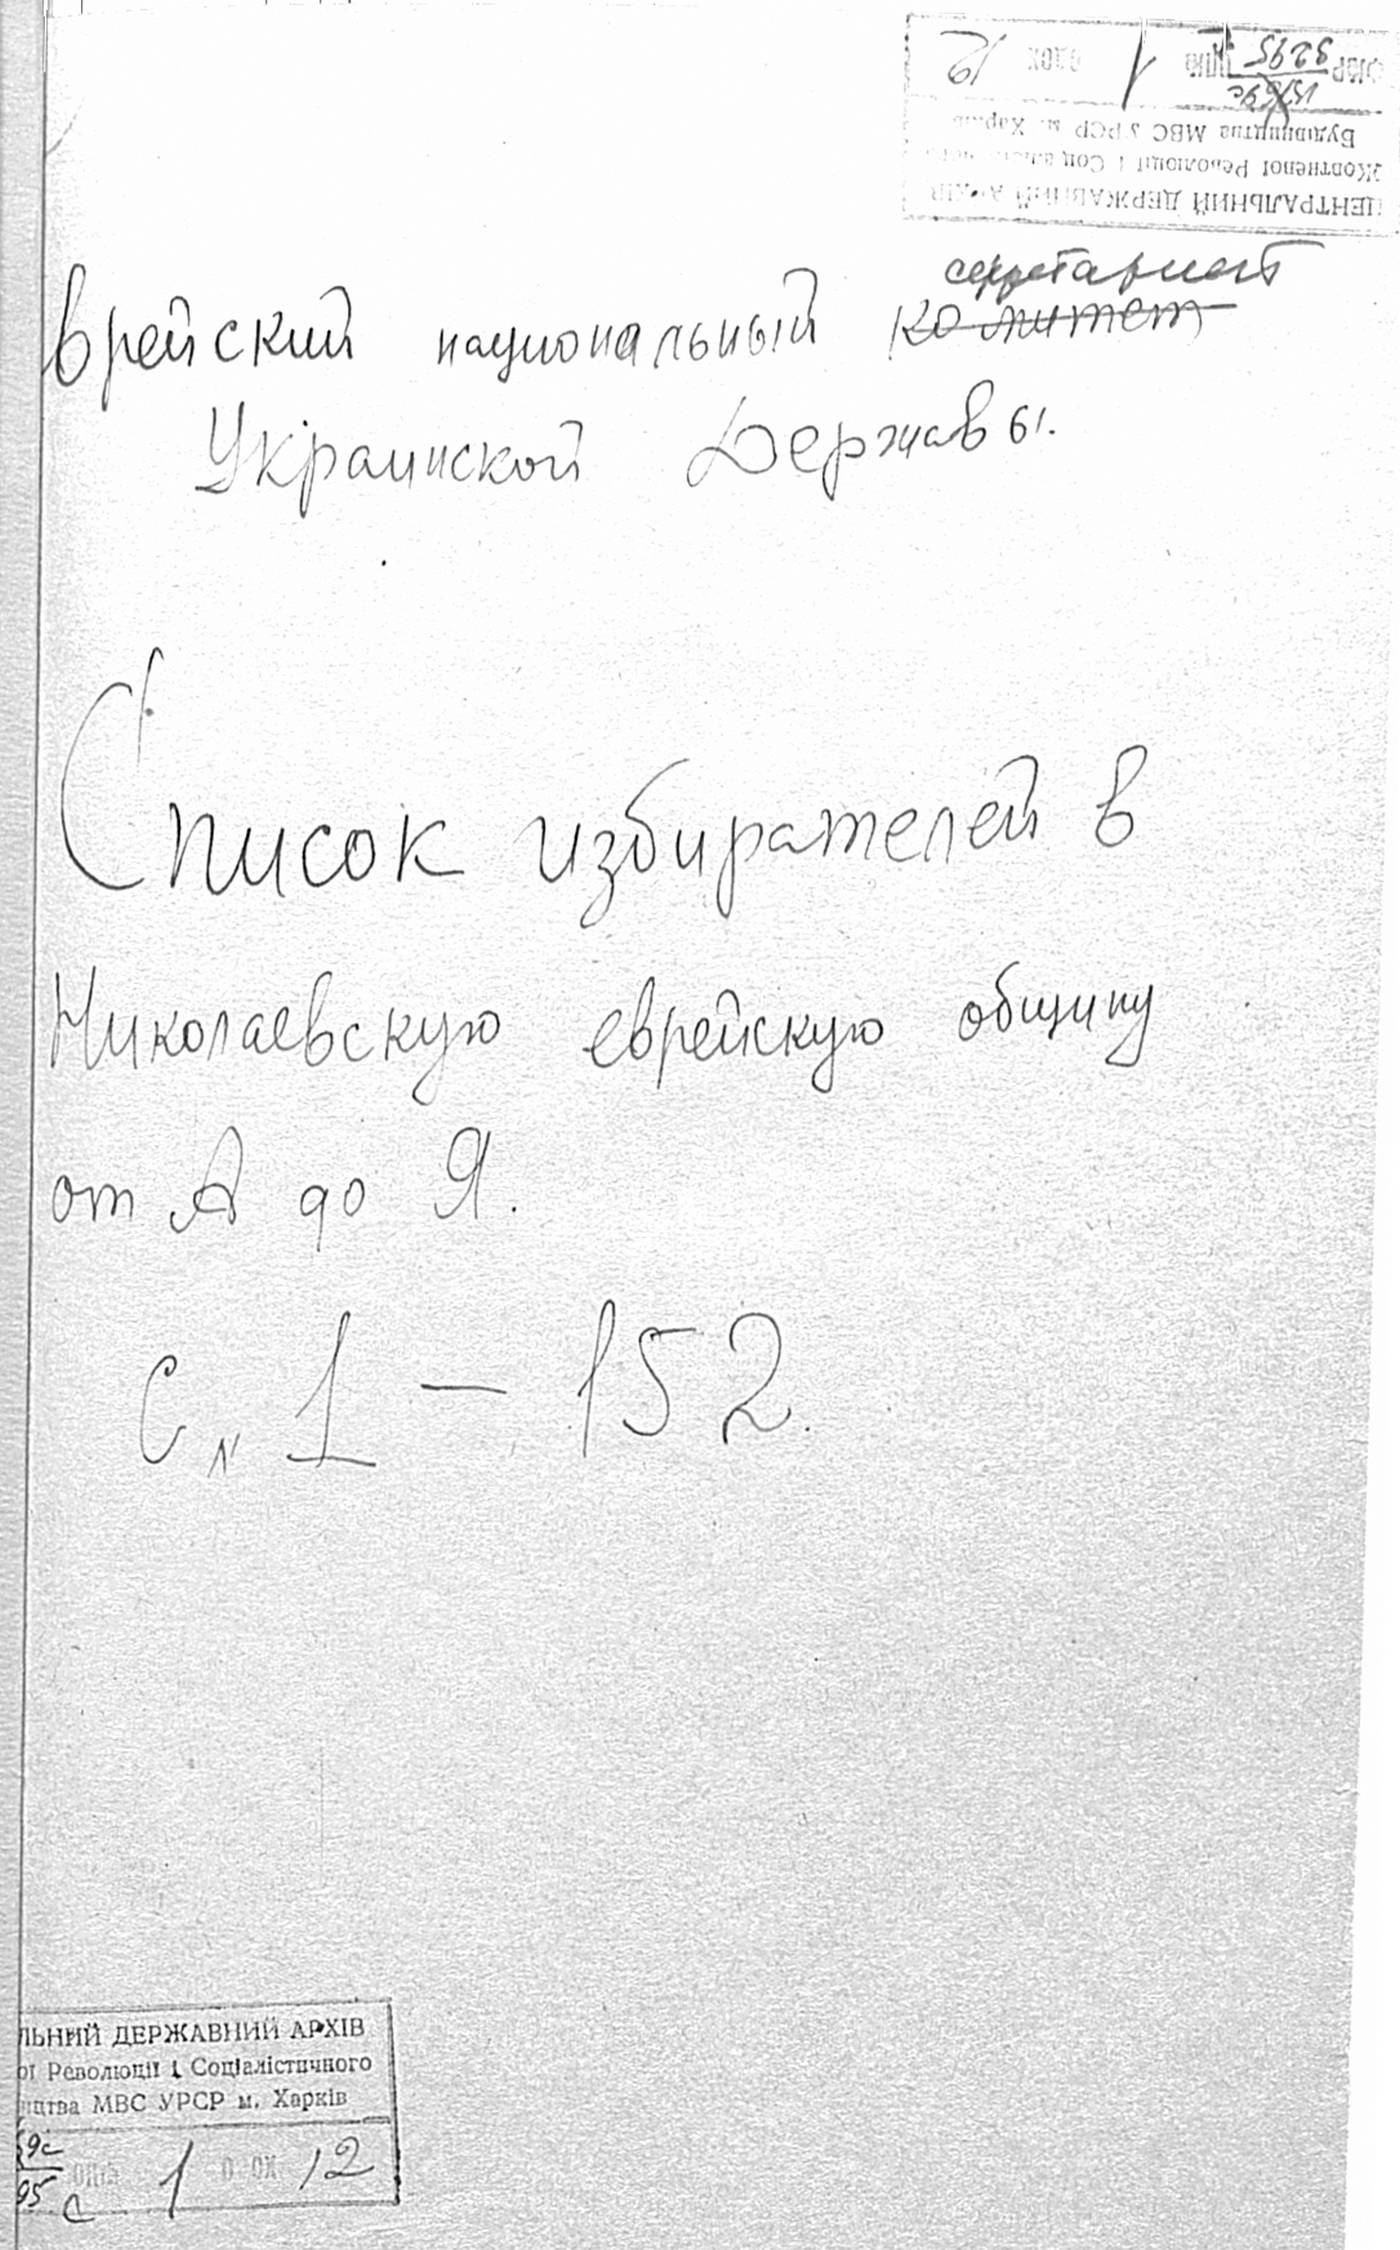 ЦЕНТРАЛЬНИЙ ДЕРЖАВНИЙ АРХІВ
Жовтневої Революції і Соціалістичного
Будівництва МВС УРСР м. Харків
1 12
3295
секретариат
врейский национальный комитет
Украинской Державы.
Список избирателей в
Николаевскую еврейскую общину
от А до Я.
С 1 — 152.
ЛЬНИЙ ДЕРЖАВНИЙ АРХІВ
ої Революції і Соціалістичного
ництва МВС УРСР м. Харків
9с
95 с 1 12